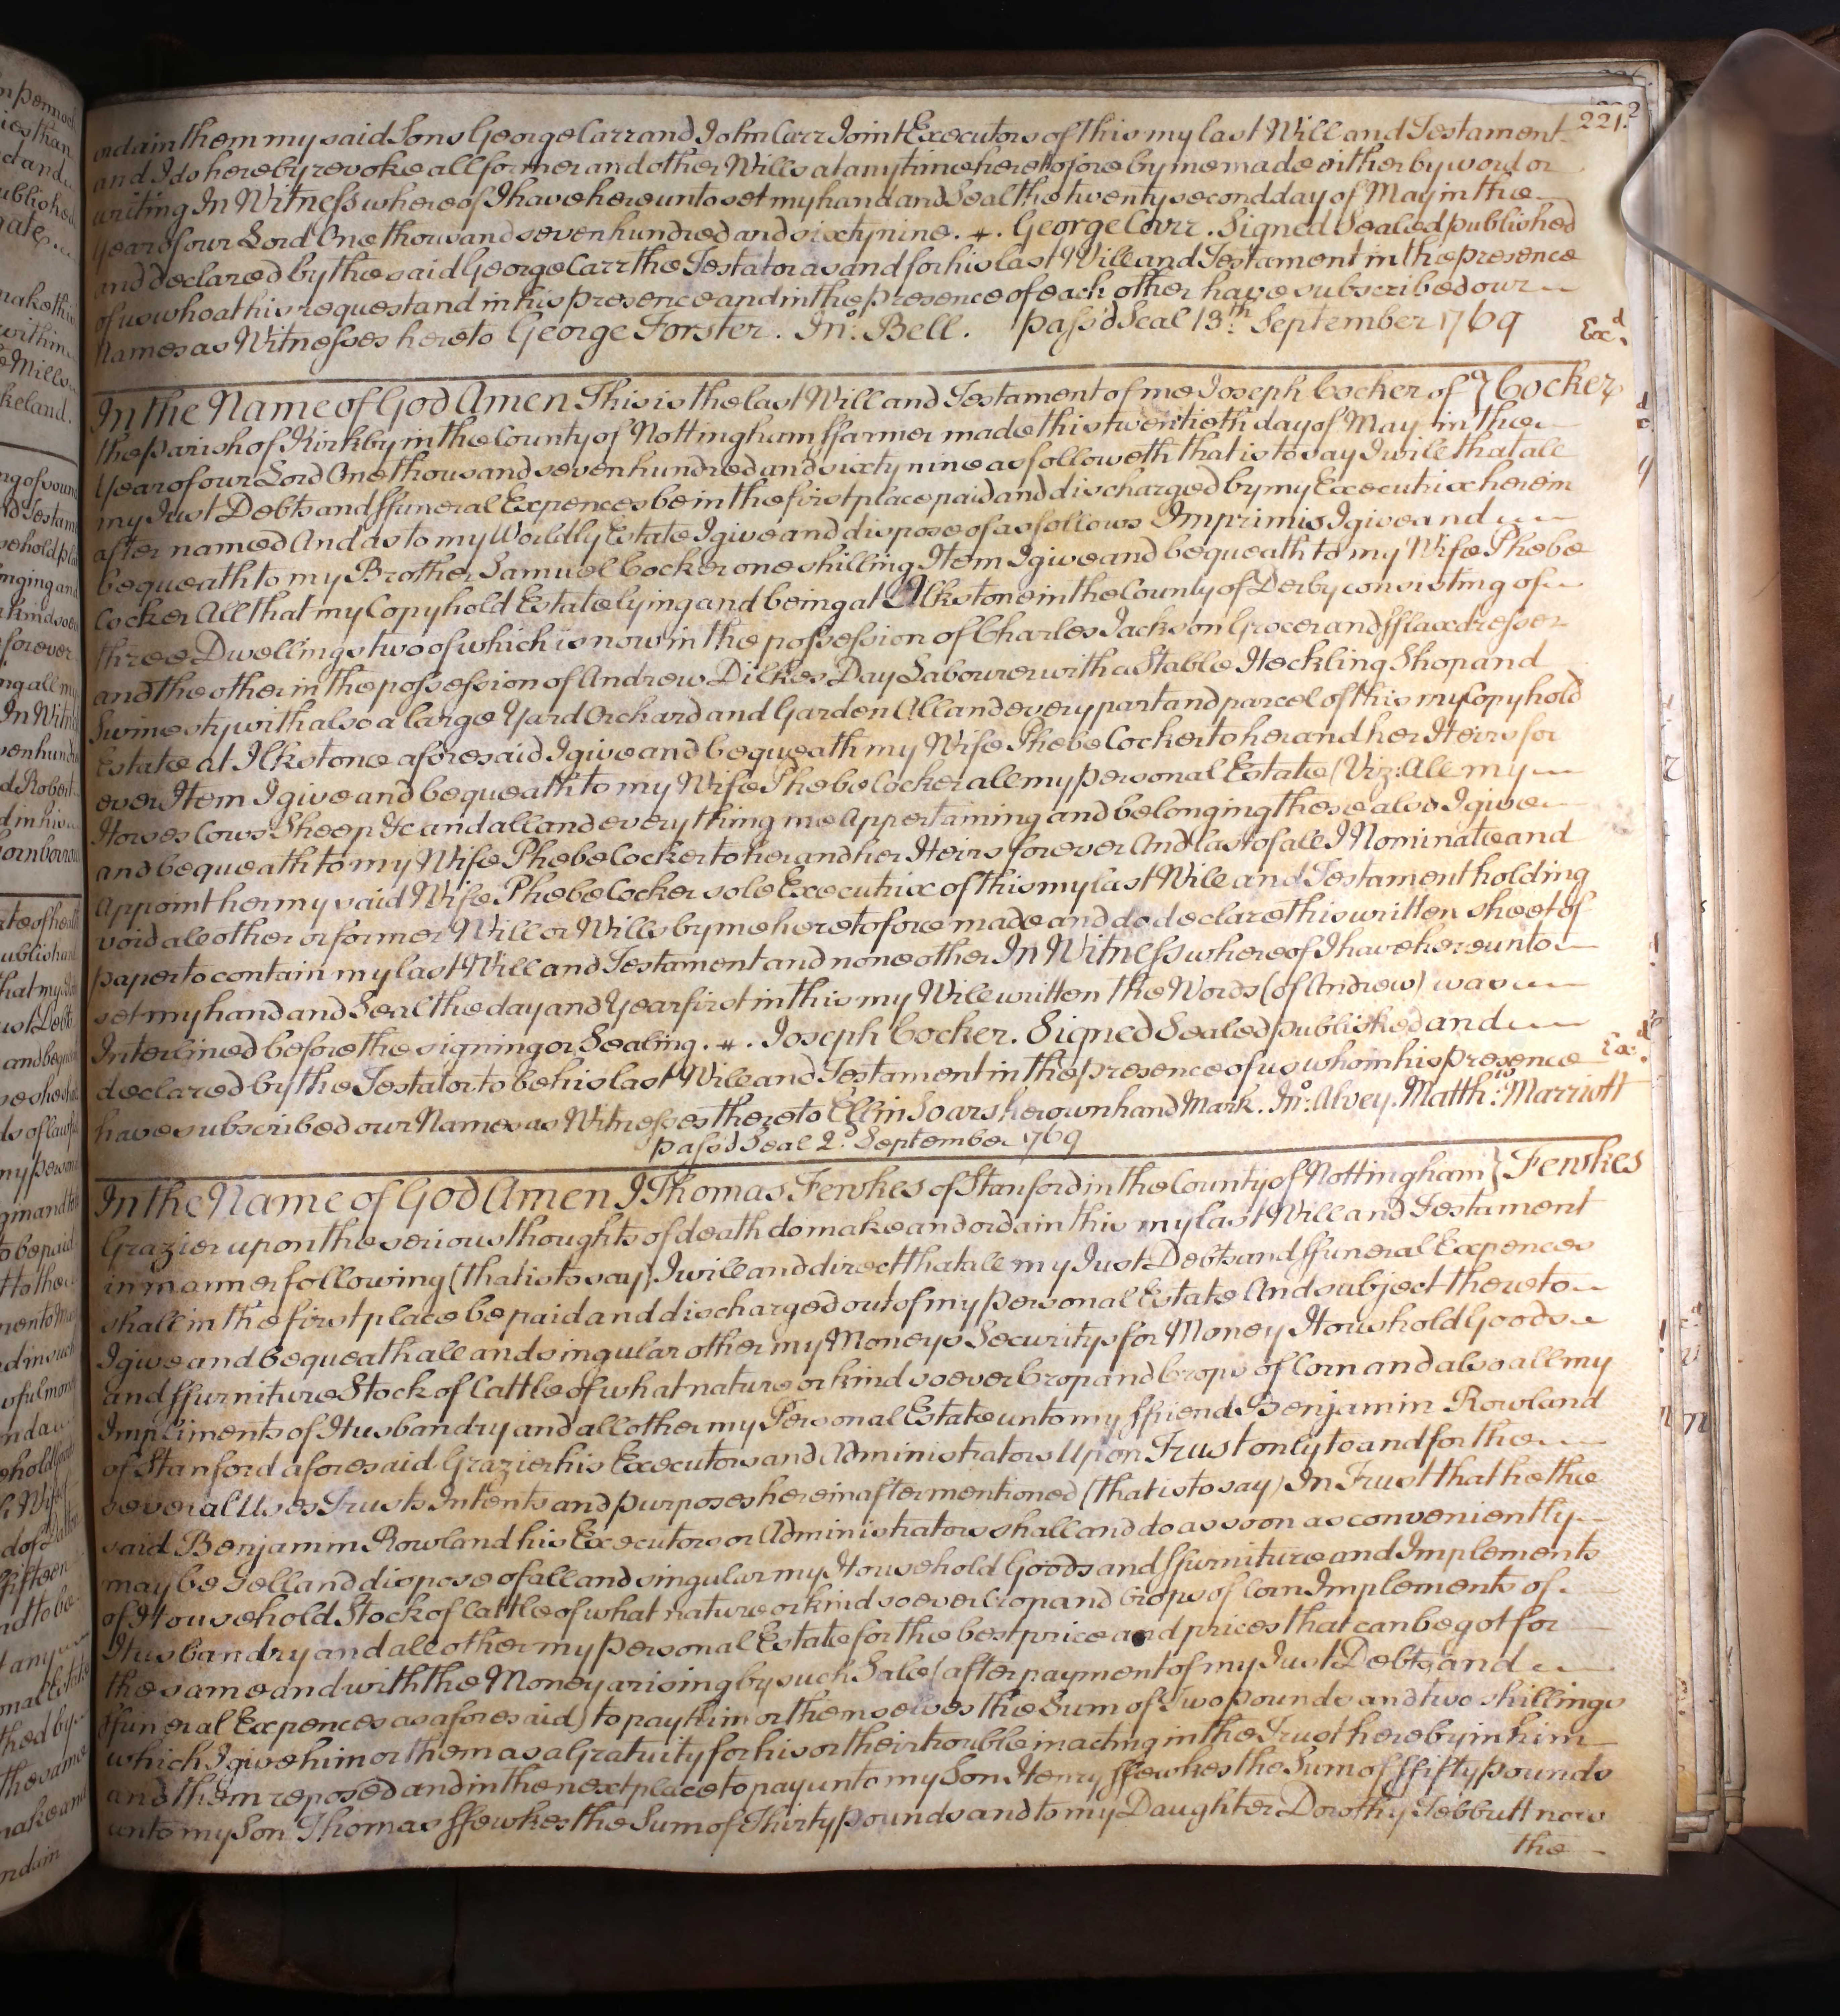 221.
ordain them my said Sons George Carr and John Carr Joint Executors of this my last Will and Testament
and I do hereby revoke all former and other Wills at any time heretofore by me made either by word or
writing In Witness whereof I have hereunto set my hand and Seal the twenty second day of May in the
Year of our Lord One thousand seven hundred and sixty nine. George Carr. Signed Sealed published
and declared by the said George Carr the Testator as and for his last Will and Testament in the presence
of us who at his request and in his presence and in the presence of each other have subscribed our
Names as Witnesses hereto George Forster. Jno. Bell. pass'd Seal 13th September 1769 Exd.
In the Name of God Amen This is the last Will and Testament of me Joseph Cocker of } Cocker
the parish of Kirkby in the County of Nottingham ffarmer made this twentieth day of May in the
Year of our Lord One thousand seven hundred and sixty nine as followeth that is to say I will that all
my Just Debts and ffuneral Expences be in the first place paid and discharged by my Executrix herein
after named And as to my Worldly Estate I give and dispose of as follows Imprimis I give and
bequeath to my Brother Samuel Cocker one shilling Item I give and bequeath to my Wife Phebe
Cocker All that my Copyhold Estate lying and being at Ilkstone in the County of Derby consisting of
three Dwellings two of which is now in the possession of Charles Jackson Grocer and fflaxdresser
and the other in the possession of Andrew Dilkes Day Labourer with a Stable Heckling Shop and
Swinesty with also a large Yard Orchard and Garden All and every part and parcel of this my Copyhold
Estate at Ilkstone aforesaid I give and bequeath my Wife Phebe Cocker to her and her Heirs for
ever Item I give and bequeath to my Wife Phebe Cocker all my personal Estate (Viz: All my
Horses Cows Sheep &c and all and every thing me Appertaining and belonging these also I give
and bequeath to my Wife Phebe Cocker to her and her Heirs forever And last of all I Nominate and
Appoint her my said Wife Phebe Cocker sole Executrix of this my last Will and Testament holding
void all other or former Will or Wills by me heretofore made and do declare this written sheet of
paper to contain my last Will and Testament and none other In Witness whereof I have hereunto
set my hand and Seal the day and Year first in this my Will written the Words (of Andrew) was
Interlined before the signing or Sealing. Joseph Cocker. Signed Sealed published and
declared by the Testator to be his last Will and Testament in the presence of us whom his presence Exd.
have subscribed our Names as Witnesses thereto Ellin Soars her own hand Mark. Jno: Alvey. Matth: Marriott
pass'd Seal 2d. September 1769
In the Name of God Amen I Thomas Fewkes of Stanford in the County of Nottingham } Fewkes
Grazier upon the serious thoughts of death do make and ordain this my last Will and Testament
in manner following (that is to say) I will and direct that all my Just Debts and ffuneral Expences
shall in the first place be paid and discharged out of my personal Estate And subject thereto
I give and bequeath all and singular other my Moneys Securitys for Money Houshold Goods
and ffurniture Stock of Cattle of what nature or kind soever Crop and Crops of Corn and also all my
Impliments of Husbandry and all other my Personal Estate unto my ffriend Benjamin Rowland
of Stanford aforesaid Grazier his Executors and Administrators Upon Trust only to and for the
several Uses Trusts Intents and purposes hereinafter mentioned (that is to say) In Trust that he the
said Benjamin Rowland his Executors or Administrators shall and do as soon as conveniently
may be sell and dispose of all and singular my Household Goods and ffurniture and Implements
of Household Stock of Cattle of what nature or kind soever Crop and Crops of Corn Implements of
Husbandry and all other my personal Estate for the best price and prices that can be got for
the same and with the Money arising by such Sale (after payment of my Just Debts and
ffuneral Expences as aforesaid) to pay him or themselves the Sum of Two pounds and two shillings
which I give him or them as a Gratuity for his or their trouble in acting in the Trust hereby in him
and them reposed and in the next place to pay unto my Son Henry ffewkes the Sum of ffifty pounds
unto my Son Thomas ffewkes the Sum of Thirty pounds and to my Daughter Dorothy Tebbutt now
the